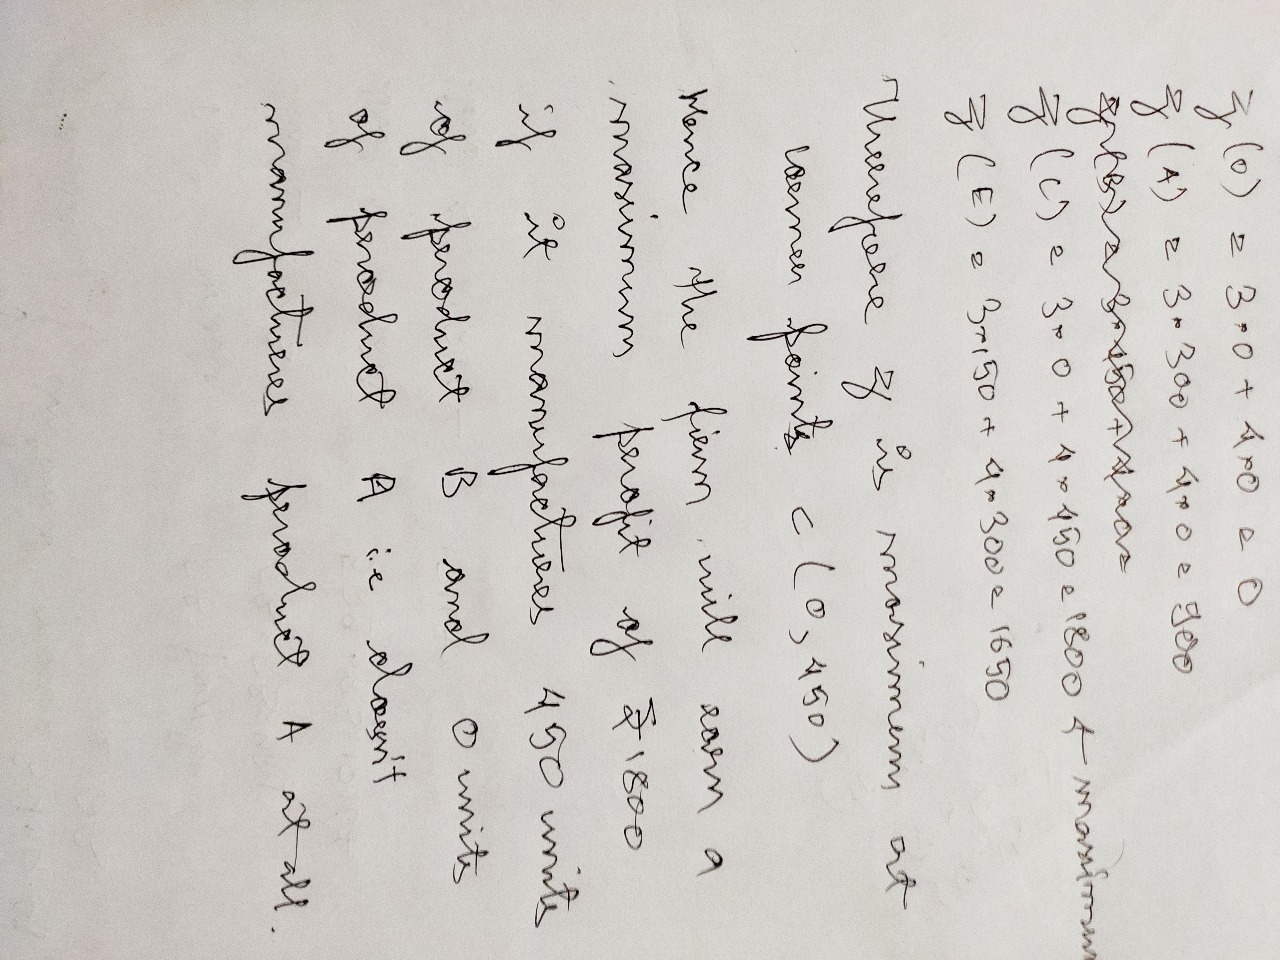 z(0) = 3×0 + 4×0 = 0
z(A) = 3×300 + 4×0 = 900
z(C) = 3×0 + 4×450 = 1800 ← maximum
z(E) = 3×150 + 4×300 = 1650
Therefore z is maximum at
corner points C (0, 450)
Hence the firm will earn a
maximum profit of ₹1800
if it manufactures 450 units
of product B and 0 units
of product A i.e doesn't
manufactures product A at all.